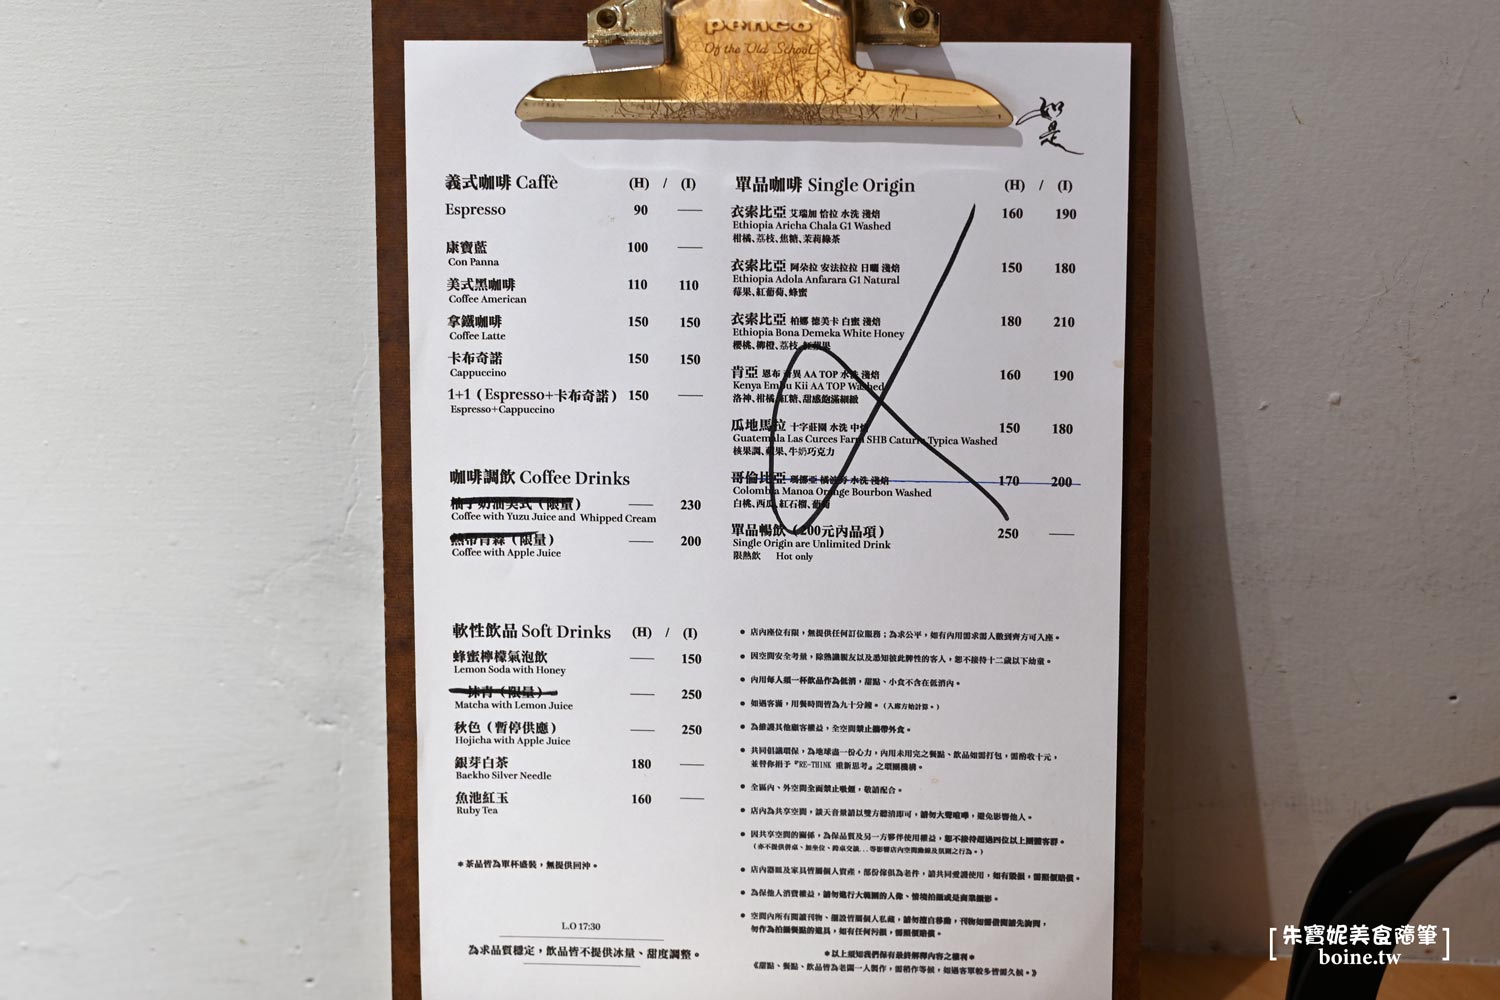 penco
Of the Old School
如是
義式咖啡 Caffè (H) / (I)
Espresso 90 —
康寶藍 100 —
Con Panna
美式黑咖啡 110 110
Coffee American
拿鐵咖啡 150 150
Coffee Latte
卡布奇諾 150 150
Cappuccino
1+1（Espresso+卡布奇諾） 150 —
Espresso+Cappuccino
咖啡調飲 Coffee Drinks
柚子奶油美式（限量） — 230
Coffee with Yuzu Juice and Whipped Cream
（限量） — 200
Coffee with Apple Juice
軟性飲品 Soft Drinks (H) / (I)
蜂蜜檸檬氣泡飲 — 150
Lemon Soda with Honey
一抹青（限量） — 250
Matcha with Lemon Juice
秋色（暫停供應） — 250
Hojicha with Apple Juice
銀芽白茶 180 —
Baekho Silver Needle
魚池紅玉 160 —
Ruby Tea
＊茶品皆為單杯盛裝，無提供回沖。
L.O 17:30
為求品質穩定，飲品皆不提供冰量、甜度調整。
單品咖啡 Single Origin (H) / (I)
衣索比亞 艾瑞加 恰拉 水洗 淺焙 160 190
Ethiopia Aricha Chala G1 Washed
柑橘、荔枝、焦糖、茉莉綠茶
衣索比亞 阿朵拉 安法拉拉 日曬 淺焙 150 180
Ethiopia Adola Anfarara G1 Natural
莓果、紅葡萄、蜂蜜
衣索比亞 柏娜 德美卡 白蜜 淺焙 180 210
Ethiopia Bona Demeka White Honey
櫻桃、柳橙、荔枝、紅蘋果
肯亞 恩布 奇異 AA TOP 水洗 淺焙 160 190
Kenya Embu Kii AA TOP Washed
洛神、柑橘、紅糖、甜感飽滿細緻
瓜地馬拉 十字莊園 水洗 中焙 150 180
Guatemala Las Curces Farm SHB Caturra Typica Washed
核果調、蘋果、牛奶巧克力
哥倫比亞 瑪娜亞 橘波旁 水洗 淺焙 170 200
Colombia Manoa Orange Bourbon Washed
白桃、西瓜、紅石榴、葡萄
單品暢飲（200元內品項） 250 —
Single Origin are Unlimited Drink
限熱飲 Hot only
● 店內座位有限，無提供任何訂位服務；為求公平，如有內用需求需人數到齊方可入座。
● 因空間安全考量，除熟識親友以及悉知彼此脾性的客人，恕不接待十二歲以下幼童。
● 內用每人須一杯飲品作為低消，甜點、小食不含在低消內。
● 如遇客滿，用餐時間皆為九十分鐘。（入席方始計算。）
● 為維護其他顧客權益，全空間禁止攜帶外食。
● 共同倡議環保，為地球盡一份心力，內用未用完之餐點、飲品如需打包，需酌收十元，
並替你捐予『RE-THINK 重新思考』之環團機構。
● 全區內、外空間全面禁止吸煙，敬請配合。
● 店內為共享空間，談天音量請以雙方聽清即可，請勿大聲喧嘩，避免影響他人。
● 因共享空間的關係，為保品質及另一方夥伴使用權益，恕不接待超過四位以上團體客群。
（亦不提供併桌、加坐位、跨桌交談...等影響店內空間動線及氛圍之行為。）
● 店內器皿及家具皆屬個人資產，部份傢俱為老件，請共同愛護使用，如有毀損，需照價賠償。
● 為保他人消費權益，請勿進行大範圍的人像、情境拍攝或是商業攝影。
● 空間內所有閱讀刊物、擺設皆屬個人私藏，請勿擅自移動，刊物如需借閱請先詢問，
勿作為拍攝餐點的道具，如有任何污損，需照價賠償。
＊以上須知我們保有最終解釋內容之權利＊
《甜點、餐點、飲品皆為老闆一人製作，需稍作等候，如遇客單較多皆需久候。》
[朱寶妮美食隨筆]
boine.tw